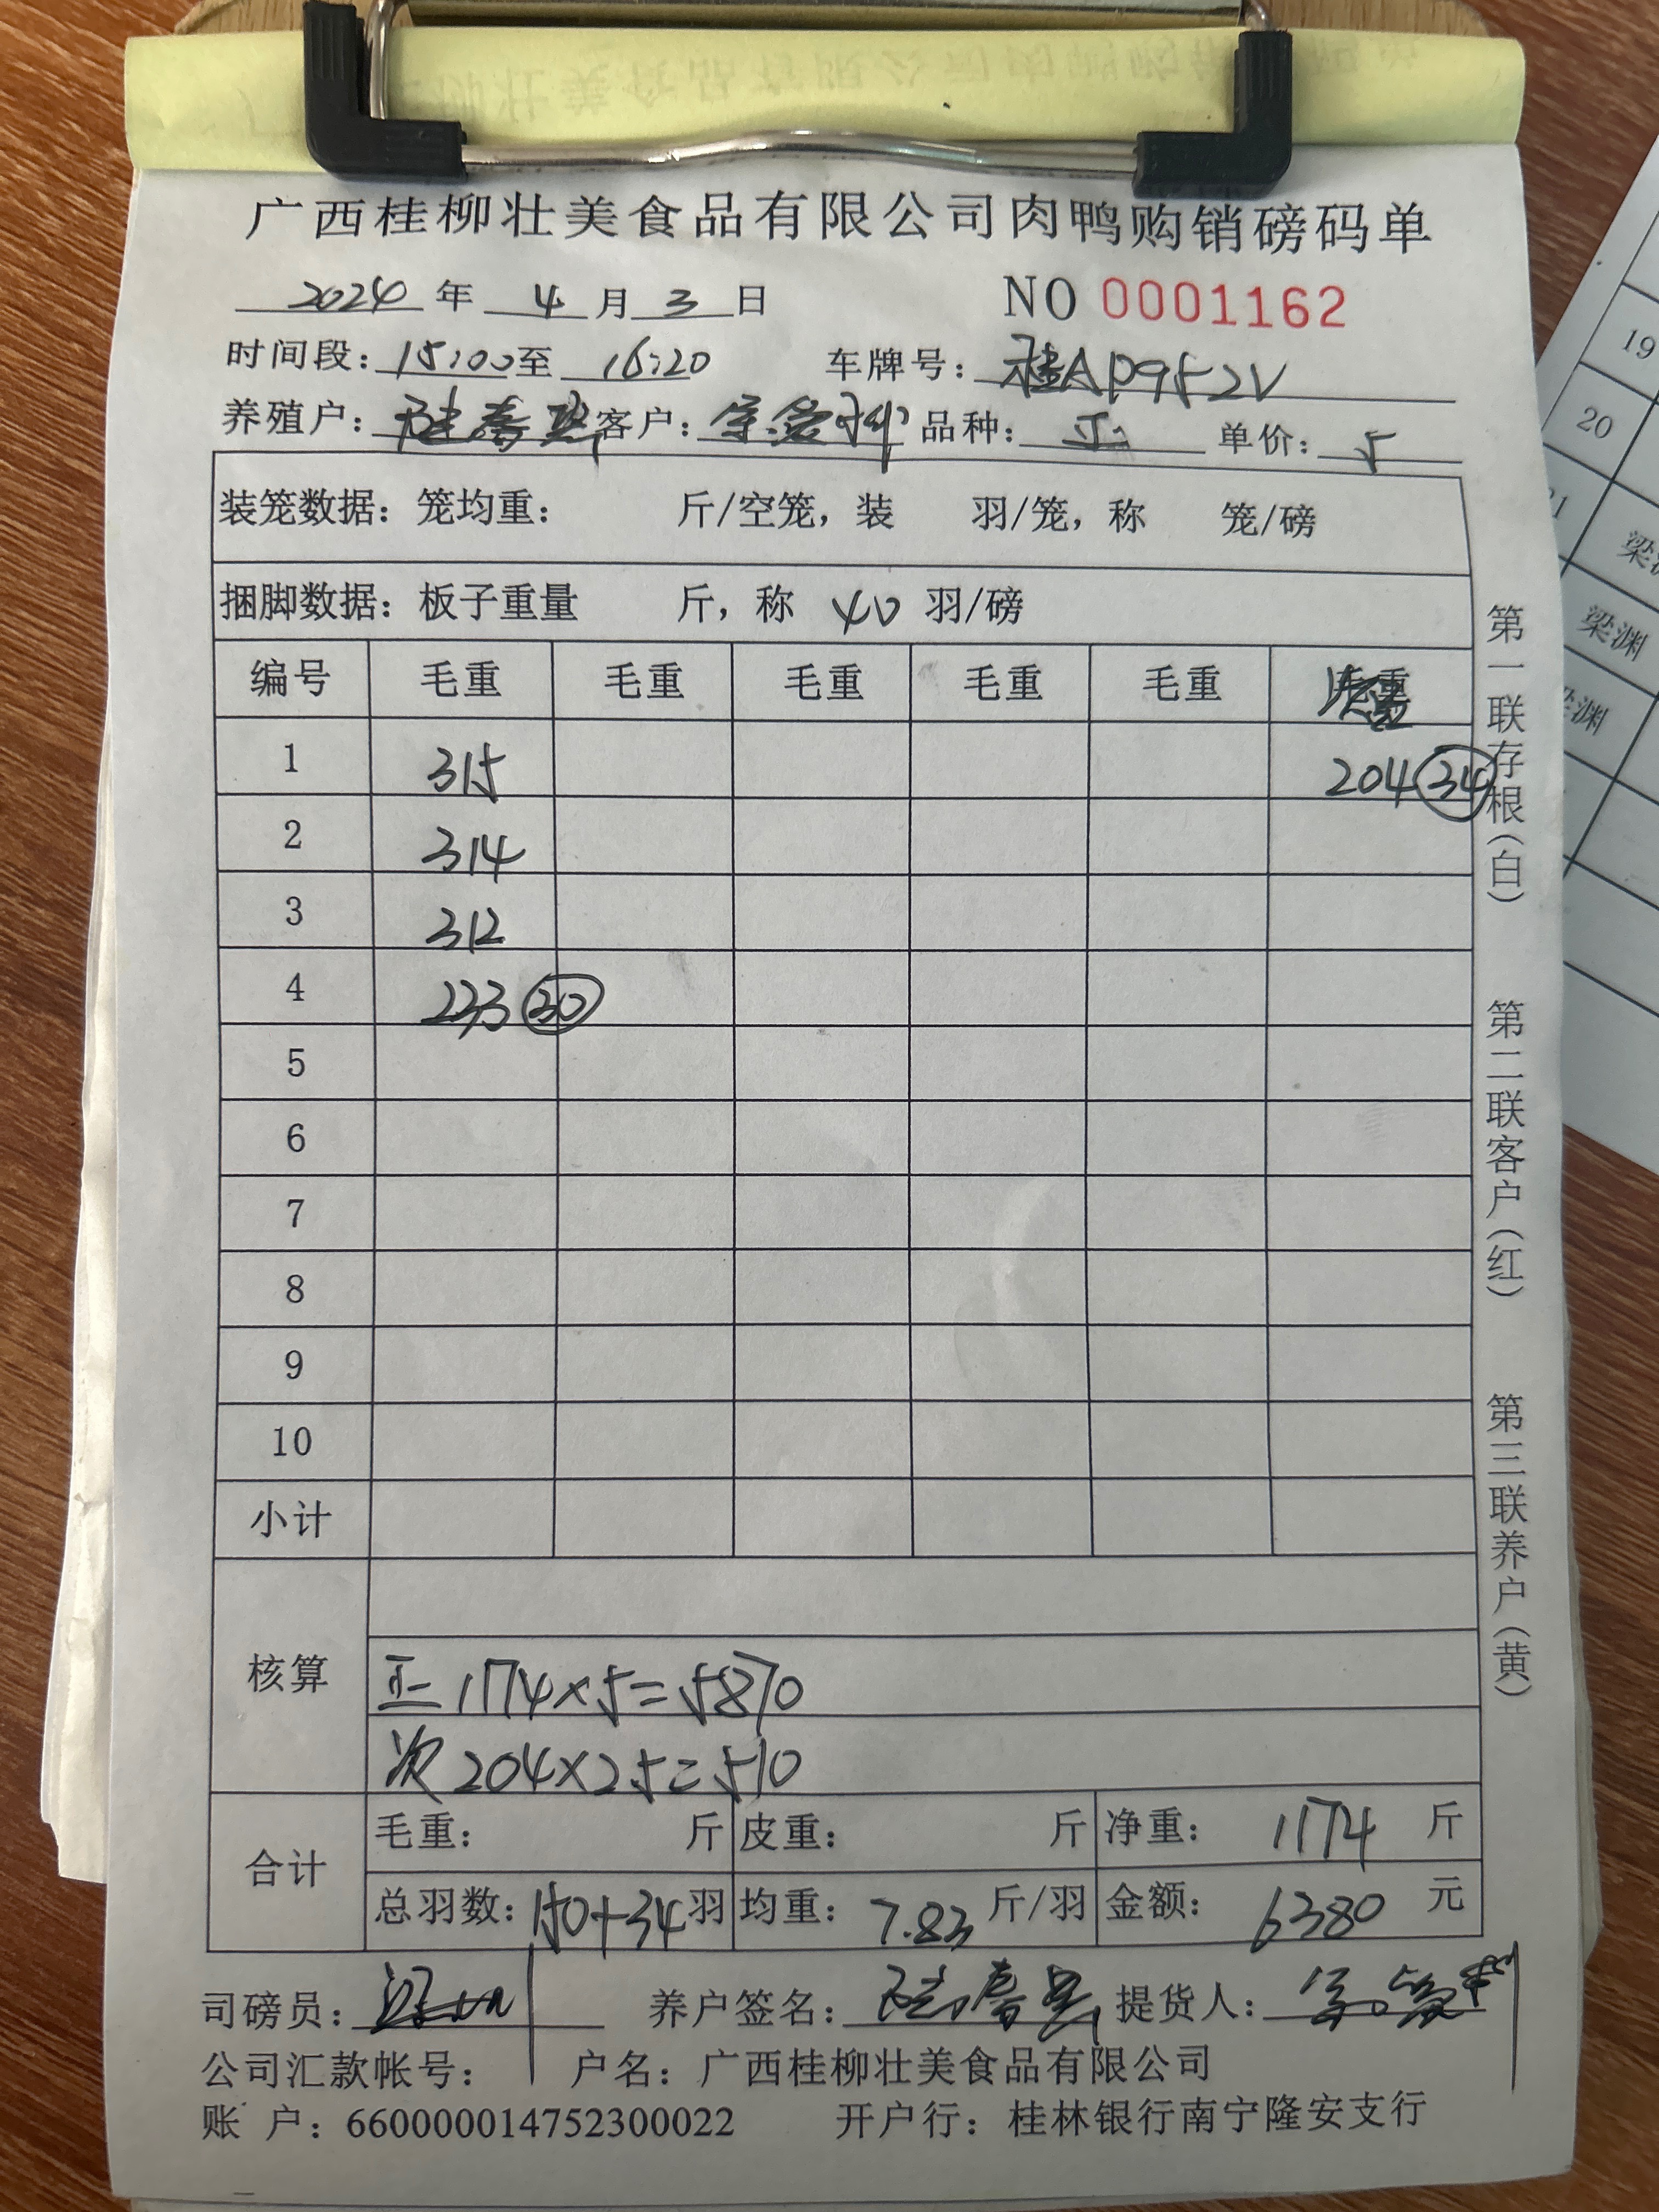 广西桂柳壮美食品有限公司肉鸭购销磅码单
2024年 4月 3日 NO 0001162
时间段：15:00至 16:20 车牌号：桂AP952V
养殖户： 客户： 品种：正 单价：5
装笼数据：笼均重： 斤/空笼，装 羽/笼，称 笼/磅
捆脚数据：板子重量 斤，称 40 羽/磅
编号 毛重 毛重 毛重 毛重 毛重
1 315 204 34
2 314
3 312
4 233 30
5
6
7
8
9
10
小计
核算
正 1174×5=5870
次 204×25=510
合计
毛重： 斤 皮重： 斤 净重：1174 斤
总羽数：150+34羽 均重：7.83 斤/羽 金额：6380 元
司磅员： 养户签名： 提货人：
公司汇款帐号： 户名：广西桂柳壮美食品有限公司
账 户：660000014752300022 开户行：桂林银行南宁隆安支行
第一联存根（白）
第二联客户（红）
第三联养户（黄）
19
20
21
梁渊
梁渊